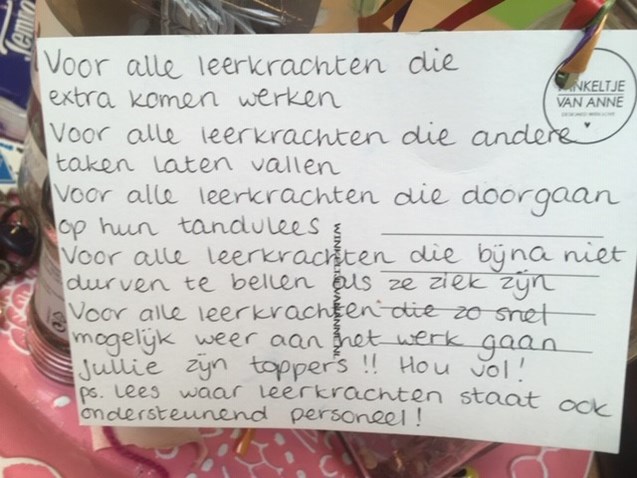 Voor alle leerkrachten die
extra komen werken
Voor alle leerkrachten die andere
taken laten vallen
Voor alle leerkrachten die doorgaan
op hun tandvlees
Voor alle leerkrachten die bijna niet
durven te bellen als ze ziek zijn
Voor alle leerkrachten die zo snel
mogelijk weer aan het werk gaan
Jullie zijn toppers!! Hou vol!
ps. lees waar leerkrachten staat ook
ondersteunend personeel!
VAN ANNE